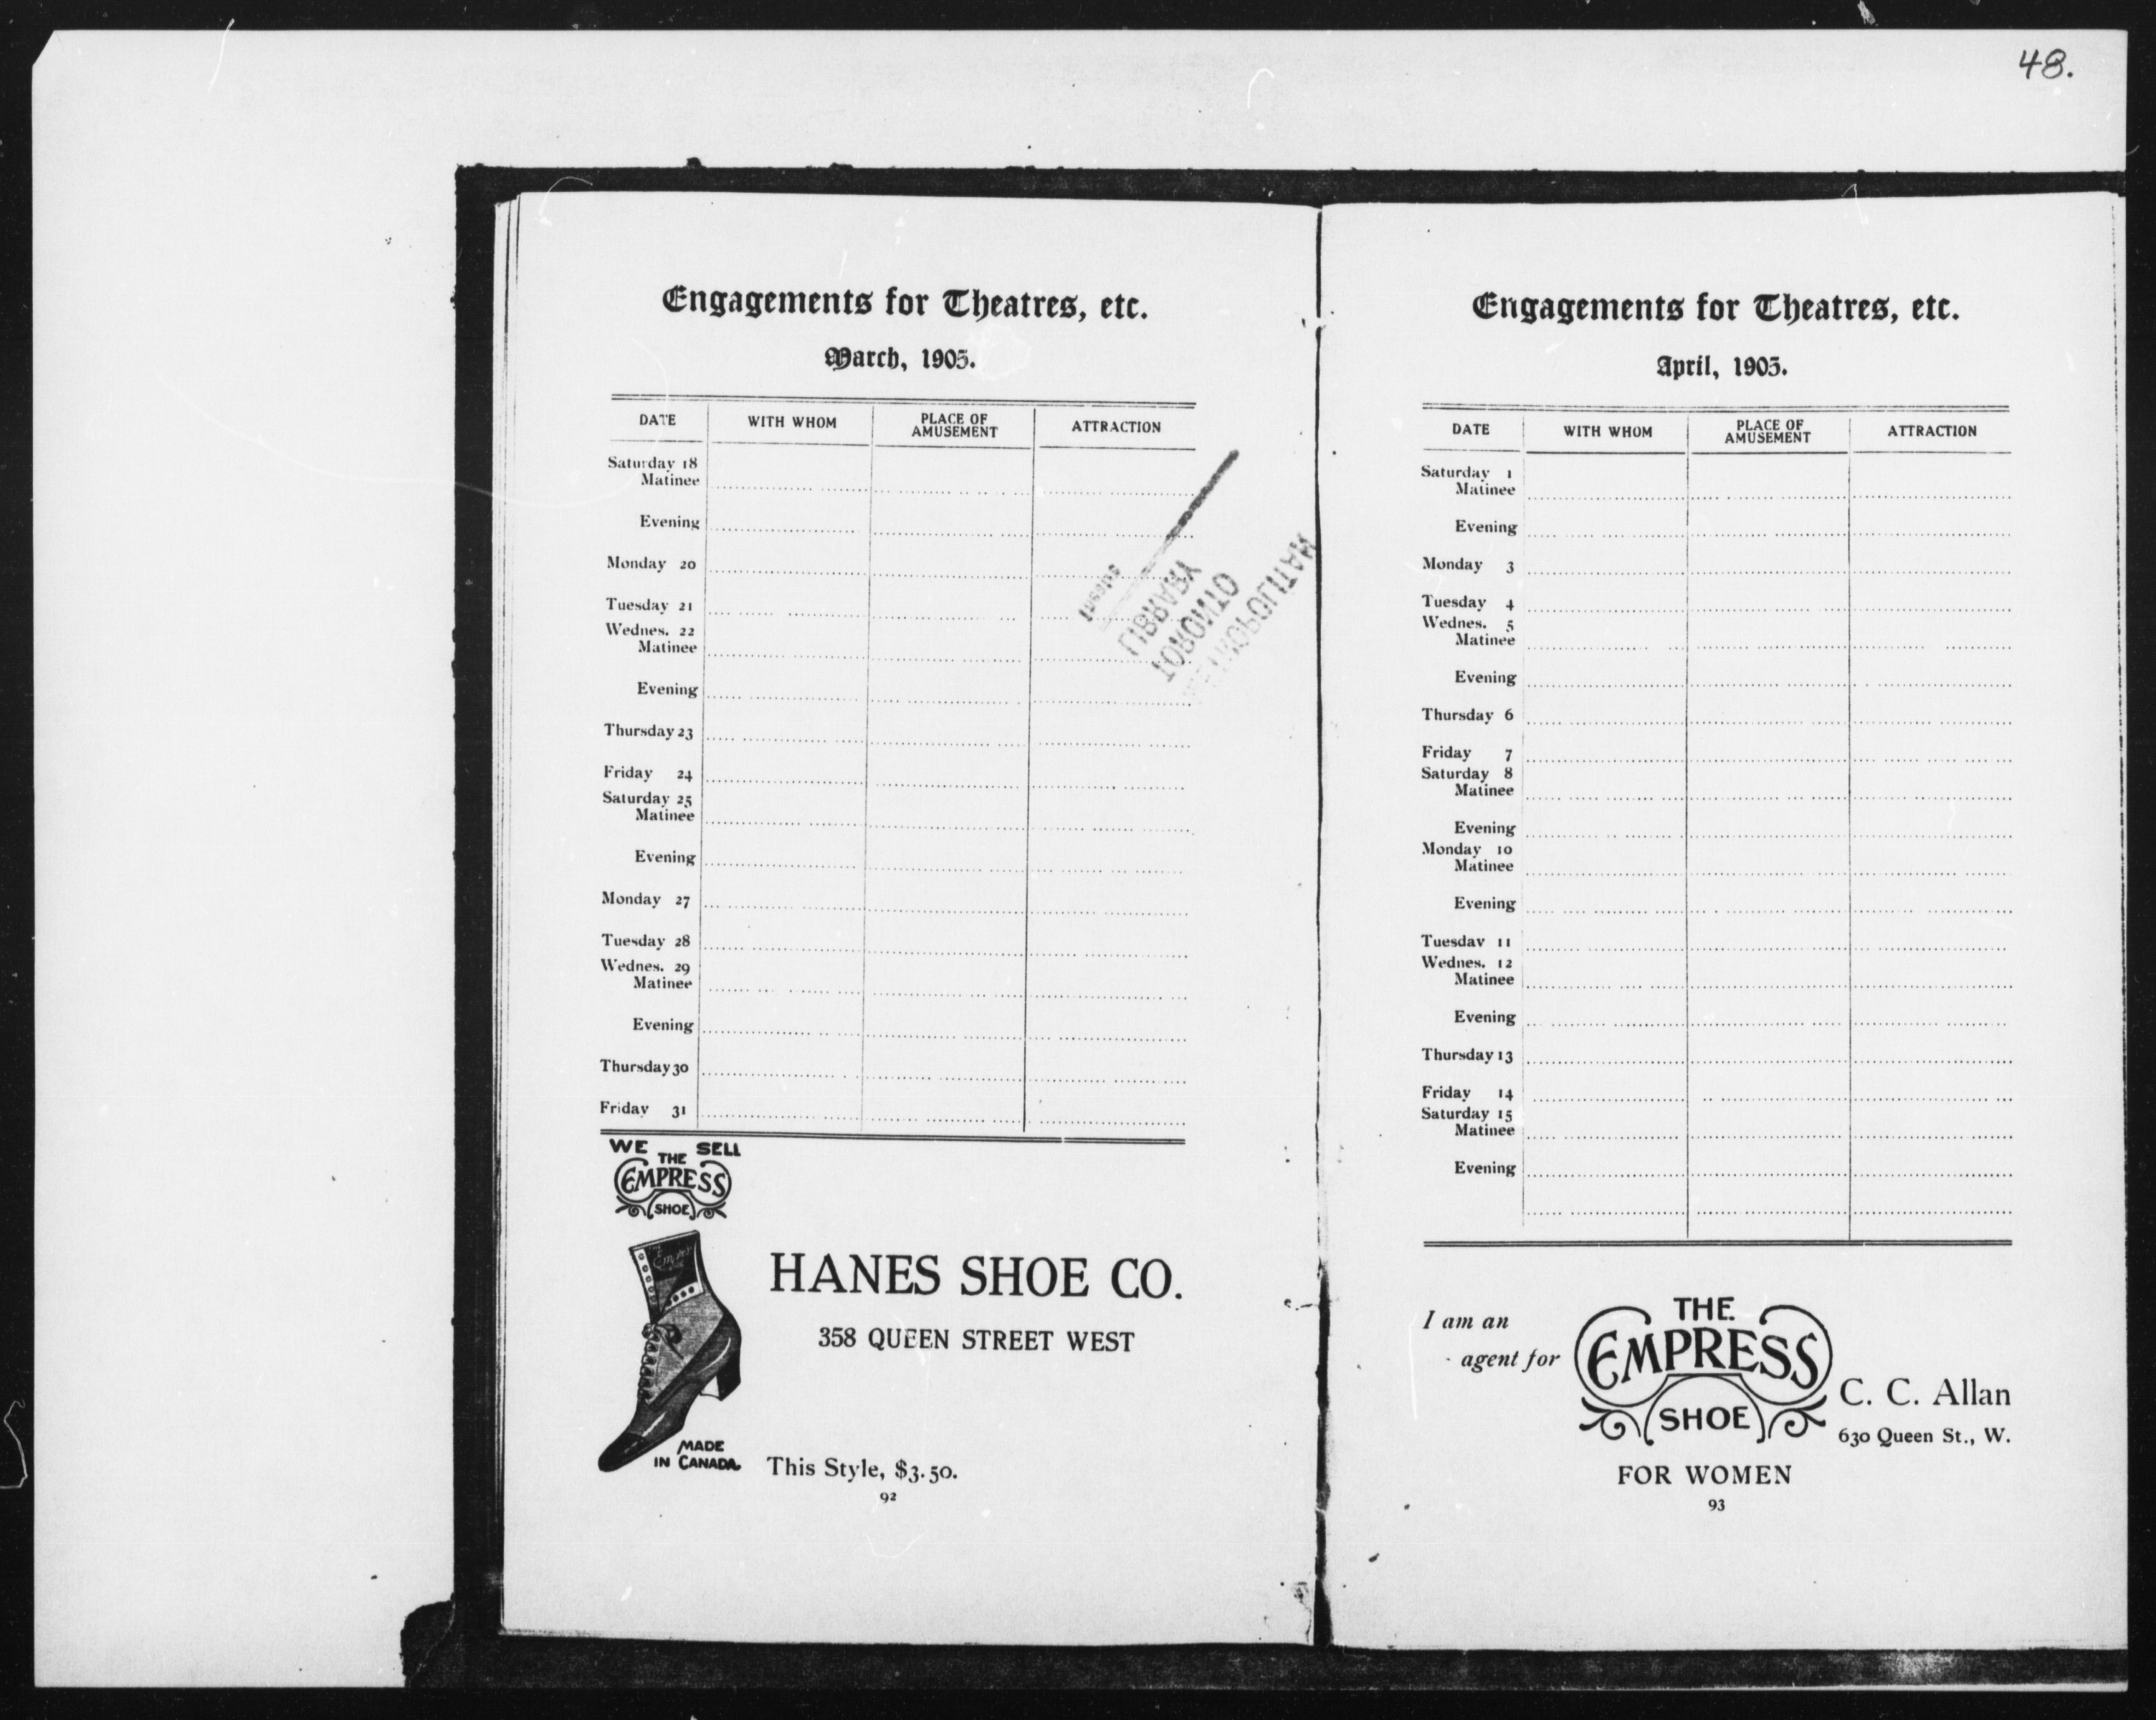 48.
Engagements for Theatres, etc.
March, 1905.
DATE WITH WHOM PLACE OF AMUSEMENT ATTRACTION
Saturday 18
Matinee
Evening
Monday 20
Tuesday 21
Wednes. 22
Matinee
Evening
Thursday 23
Friday 24
Saturday 25
Matinee
Evening
Monday 27
Tuesday 28
Wednes. 29
Matinee
Evening
Thursday 30
Friday 31
LIBRARY
TORONTO
WE SELL
THE
EMPRESS
SHOE
Empress
HANES SHOE CO.
358 QUEEN STREET WEST
MADE
IN CANADA
This Style, $3.50.
92
Engagements for Theatres, etc.
April, 1905.
DATE WITH WHOM PLACE OF AMUSEMENT ATTRACTION
Saturday 1
Matinee
Evening
Monday 3
Tuesday 4
Wednes. 5
Matinee
Evening
Thursday 6
Friday 7
Saturday 8
Matinee
Evening
Monday 10
Matinee
Evening
Tuesday 11
Wednes. 12
Matinee
Evening
Thursday 13
Friday 14
Saturday 15
Matinee
Evening
I am an
agent for
THE
EMPRESS
SHOE
C. C. Allan
630 Queen St., W.
FOR WOMEN
93